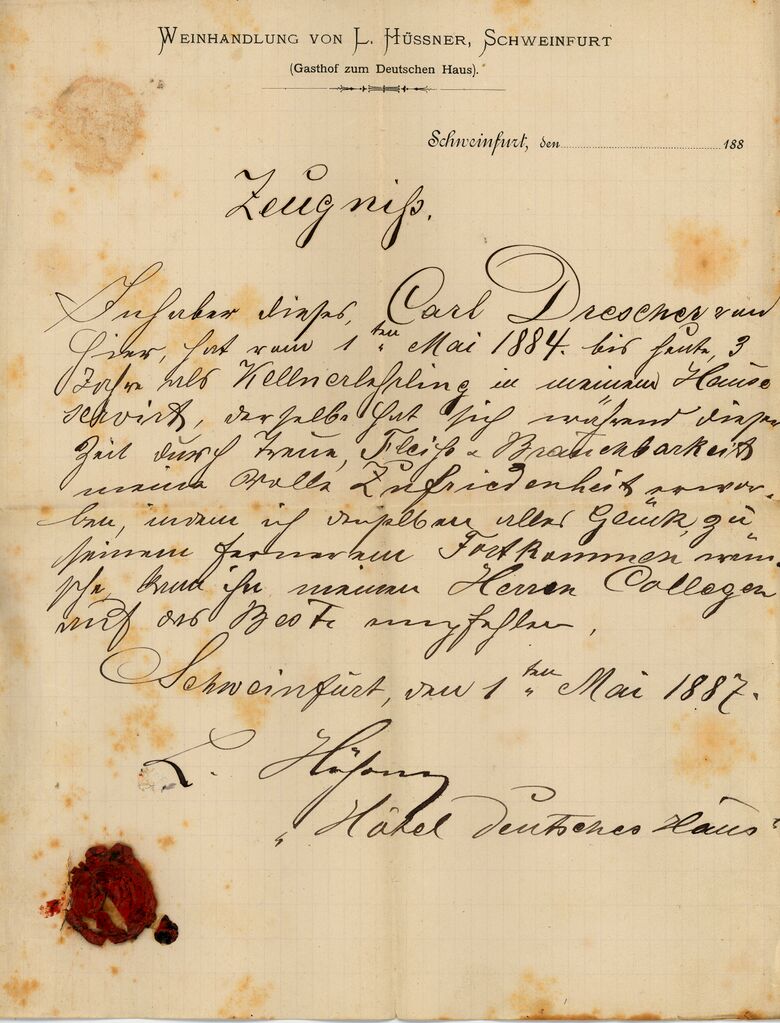 WEINHANDLUNG VON L. HÜSSNER, SCHWEINFURT
(Gasthof zum Deutschen Haus).
Schweinfurt, den 188
Zeugniß.
Inhaber dieses, Carl Drescher von
hier, hat vom 1ten Mai 1884. bis heute, 3
Jahre als Kellnerlehrling in meinem Hause
servirt, derselbe hat sich während dieser
Zeit durch Treue, Fleiß & Brauchbarkeit
meine volle Zufriedenheit erwor-
ben, indem ich demselben alles Glück zu
seinem fernerem Fortkommen wün-
sche, kann ihn meinen Herren Collegen
auf das Beste empfehlen.
Schweinfurt, den 1ten Mai 1887.
L. Hüßner
"Hôtel Deutsches Haus"